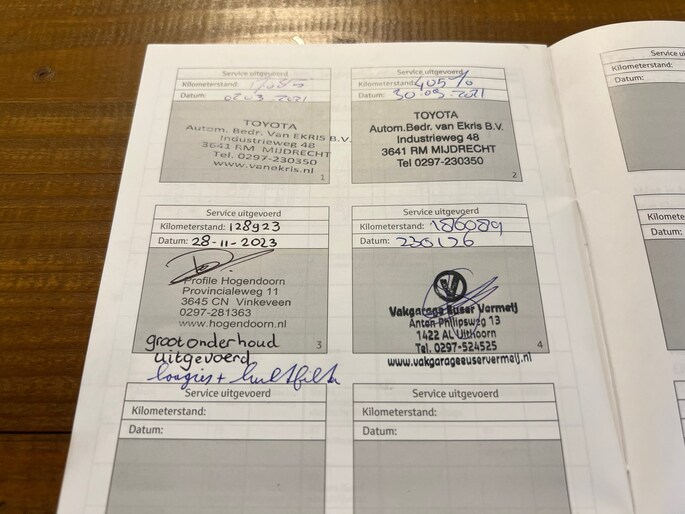 Service uitgevoerd
Kilometerstand:
Datum: 02 03 2021
TOYOTA
Autom. Bedr. Van EKRIS B.V.
Industrieweg 48
3641 RM MIJDRECHT
Tel. 0297-230350
www.vanekris.nl
1
Service uitgevoerd
Kilometerstand:
Datum: 30.09.2021
TOYOTA
Autom.Bedr. van Ekris B.V.
Industrieweg 48
3641 RM MIJDRECHT
Tel 0297-230350
2
Service uitgevoerd
Kilometerstand: 128923
Datum: 28-11-2023
Profile Hogendoorn
Provincialeweg 11
3645 CN Vinkeveen
0297-281363
www.hogendoorn.nl
3
groot onderhoud
uitgevoerd
Service uitgevoerd
Kilometerstand: 186089
Datum: 230126
Vakgarage Euser Vermeij
Anton Philipsweg 13
1422 AL Uithoorn
Tel. 0297-524525
www.vakgarageeuservermeij.nl
4
Service uitgevoerd
Kilometerstand:
Datum:
Service uitgevoerd
Kilometerstand:
Datum:
Kilometerstand:
Datum:
Datum: